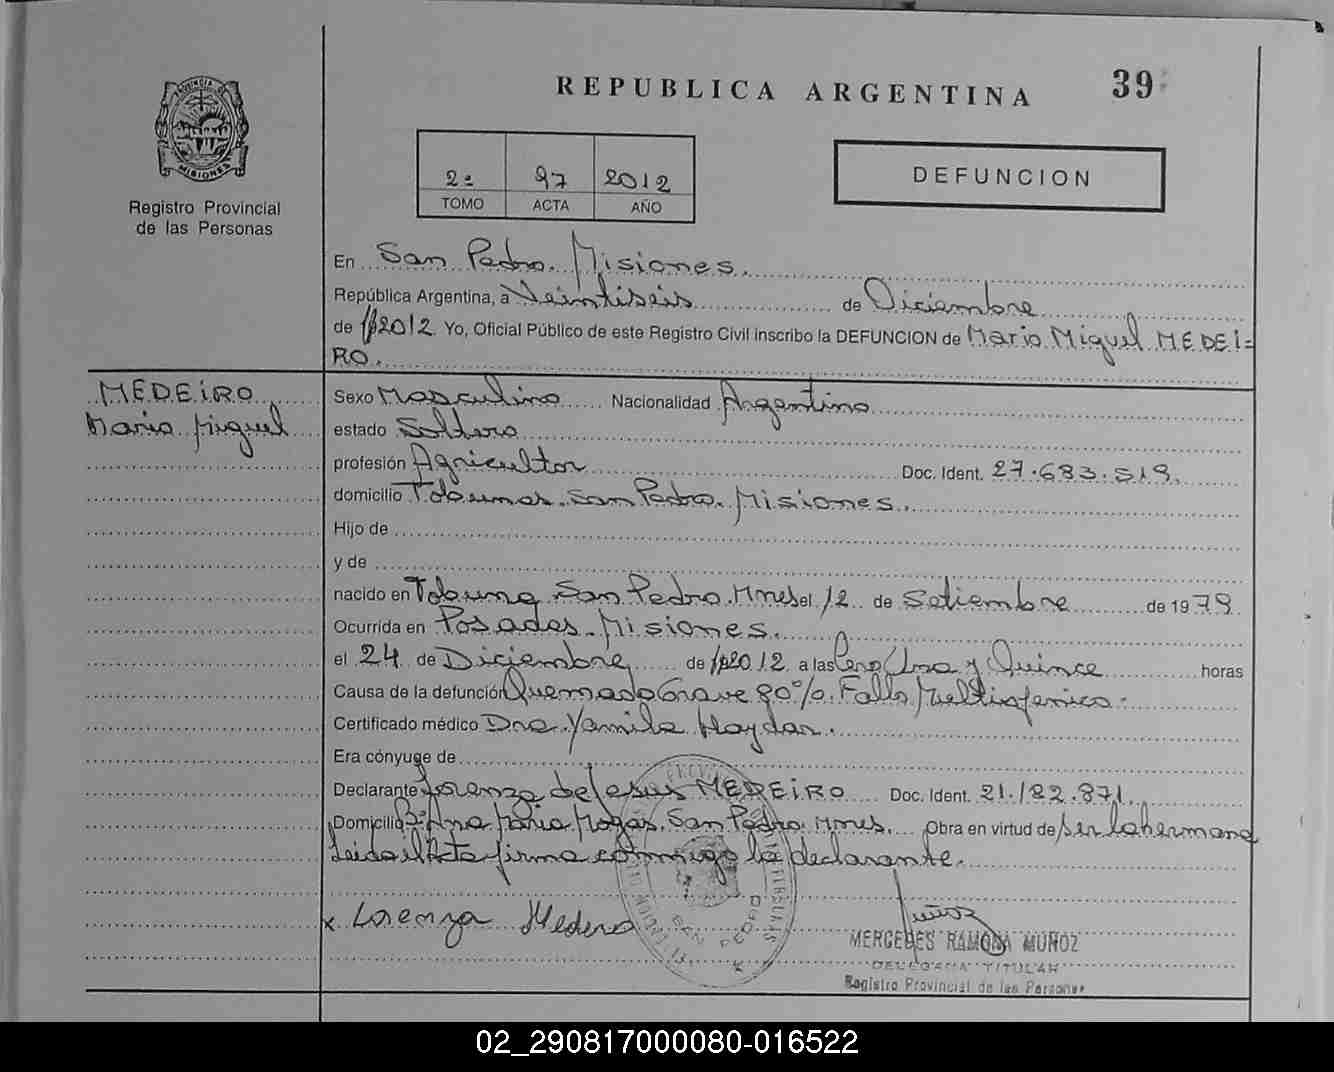 REPUBLICA ARGENTINA
39
PROVINCIA DE
MISIONES
Registro Provincial
de las Personas
2º 97 2012
TOMO ACTA AÑO
DEFUNCION
En San Pedro. Misiones.
República Argentina, a Veintiseis de Diciembre
de 2012 Yo, Oficial Público de este Registro Civil inscribo la DEFUNCION de Mario Miguel MEDEI=
RO.
MEDEIRO
Mario Miguel
Sexo Masculino Nacionalidad Argentino
estado Soltero
profesión Agricultor Doc. Ident. 27.683.519.
domicilio Tobunas. San Pedro. Misiones.
Hijo de
y de
nacido en Tobuna San Pedro. Mnes el 12 de Setiembre de 1979
Ocurrida en Posadas. Misiones.
el 24 de Diciembre de 2012 a las Cero Una y Quince horas
Causa de la defunción Quemado Grave 90%. Falla Multiorganica.
Certificado médico Dra. Yamila Haydar.
Era cónyuge de
Declarante Lorenza de Jesus MEDEIRO Doc. Ident. 21.182.871.
Domicilio Bº Ana Maria Mogas. San Pedro. Mnes. Obra en virtud de ser la hermana
Leida el Acta firma conmigo la declarante.
x Lorenza Mederos
Muñoz
MERCEDES RAMONA MUÑOZ
DELEGADA TITULAR
Registro Provincial de las Personas
SAN PEDRO
02_290817000080-016522